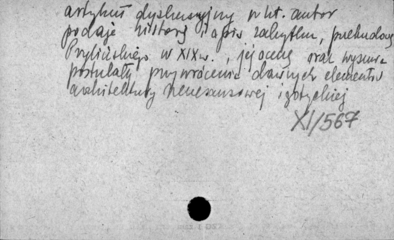 artykuł dyskusyjny w kt. autor
podaje historię i opis zabytku, przebudowę
Prylińskiego w XIX w., jej ocenę oraz wysuwa
postulaty przywrócenia dawnych elementów
architektury renesansowej i gotyckiej
XI/567